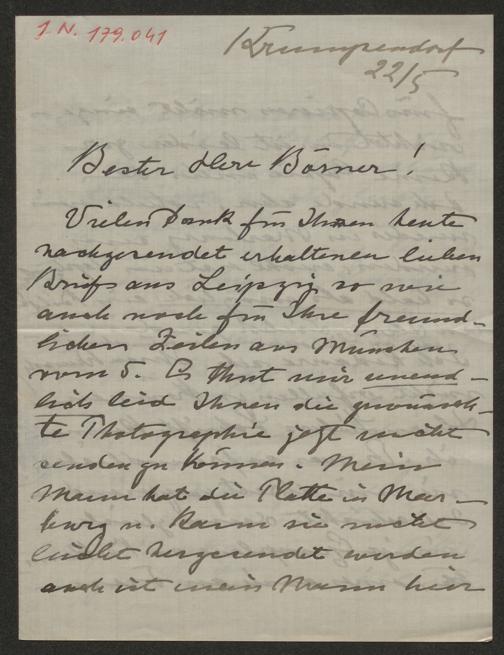 J.N. 179.041
Krumpendorf
22/5
Bester Herr Börner!
Vielen Dank für Ihren heute
nachgesendet erhaltenen lieben
Brief aus Leipzig so wie
auch noch für Ihre freund-
lichen Zeilen aus München
vom 5. Es thut mir unend-
lich leid Ihnen die gewünsch-
te Photographie jetzt nicht
senden zu können. Mein
Mann hat die Platte in Mar-
burg u. kann sie nicht
leicht hergesendet werden
auch ist mein Mann hier